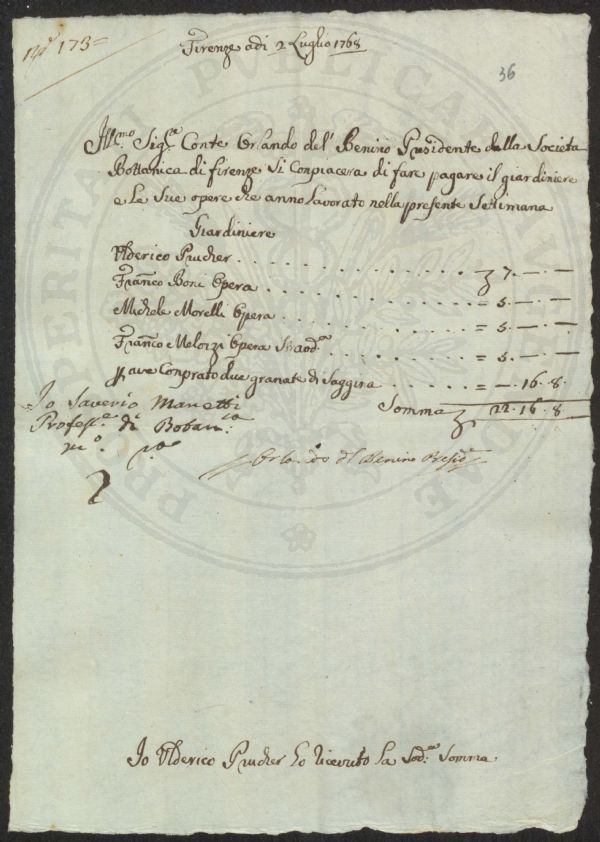 173=
Firenze adi 2 Luglio 1768
36
Ill.mo Sig.re Conte Orlando del' Benino Presidente della Societa
Bottanica di firenze Si Conpiacera di fare pagare il giardiniere
e le Sue opere che anno lavorato nella presente Settimana
Giardiniere
Ulderico Prucher . . . . . . . . . . 7. — . —
Franco Boni Opera . . . . . . . . . . = 5. — . —
Michele Morelli Opera . . . . . . . . . . = 5. — . —
Franco Melozzi Opera . . . . . . . . . . = 5. — . —
P ave Conprato due granate di Saggina . . . . . = — . 16. 8.
Somma 22. 16. 8.
Io Saverio Manetti
Profess.e di Botan.ca
m.o p.a
Orlando del Benino Presid.e
Io Ulderico Prucher ho ricevuto La Sod.a Somma
PROSPERITATI PUBLICAE AUGENDAE